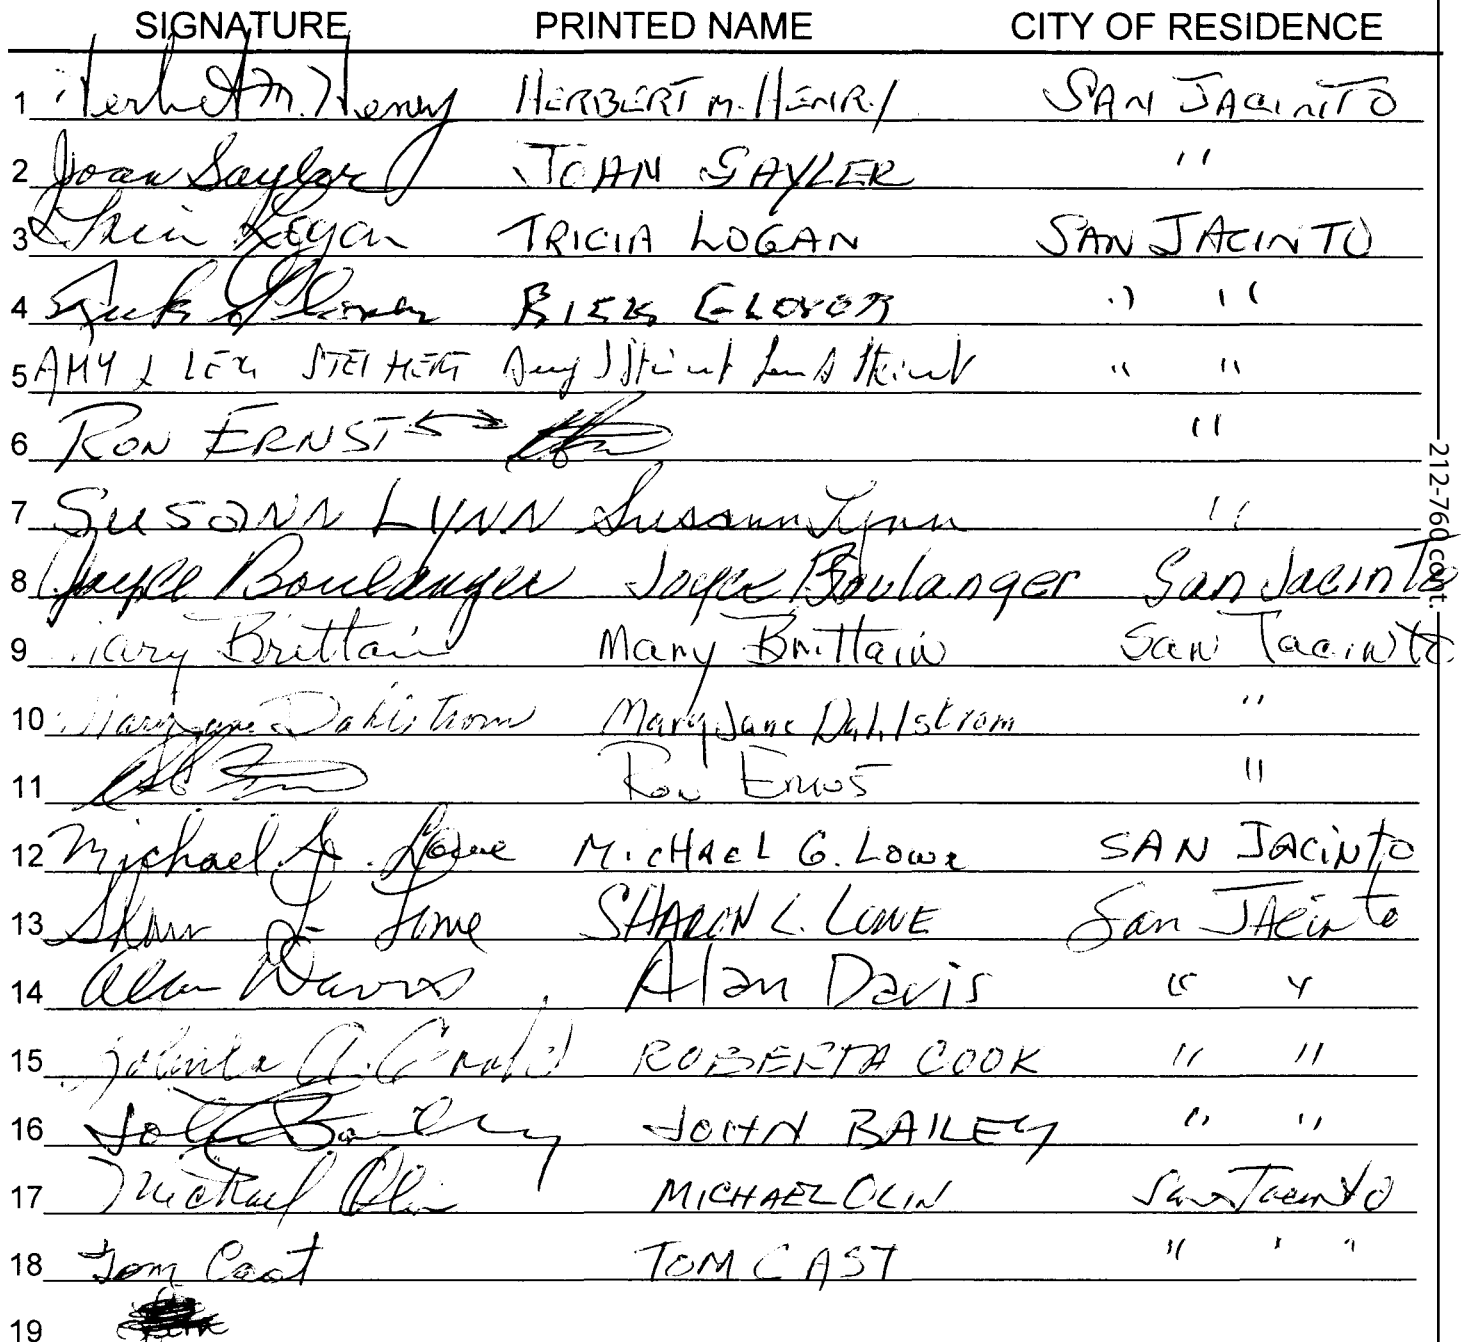 SIGNATURE PRINTED NAME CITY OF RESIDENCE
1 Herbert M. Henry HERBERT M. HENRY SAN JACINTO
2 Joan Sayler JOAN SAYLER "
3 Tricia Logan TRICIA LOGAN SAN JACINTO
4 Rick Glover RICK GLOVER " "
5 AMY & LEN STEINERT " "
6 RON ERNST "
7 SUSANN LYNN Susann Lynn "
8 Joyce Boulanger Joyce Boulanger San Jacinto
9 Mary Brittain Mary Brittain San Jacinto
10 Mary Jane Dahlstrom Mary Jane Dahlstrom "
11 Ron "
12 Michael G. Lowe MICHAEL G. LOWE SAN JACINTO
13 Sharon L. Lowe SHARON L. LOWE San JAcinto
14 Alan Davis Alan Davis " "
15 ROBERTA COOK " "
16 John Bailey JOHN BAILEY " "
17 Michael Olin MICHAEL OLIN San Jacinto
18 Tom Cast TOM CAST " " "
19
212-760 cont.